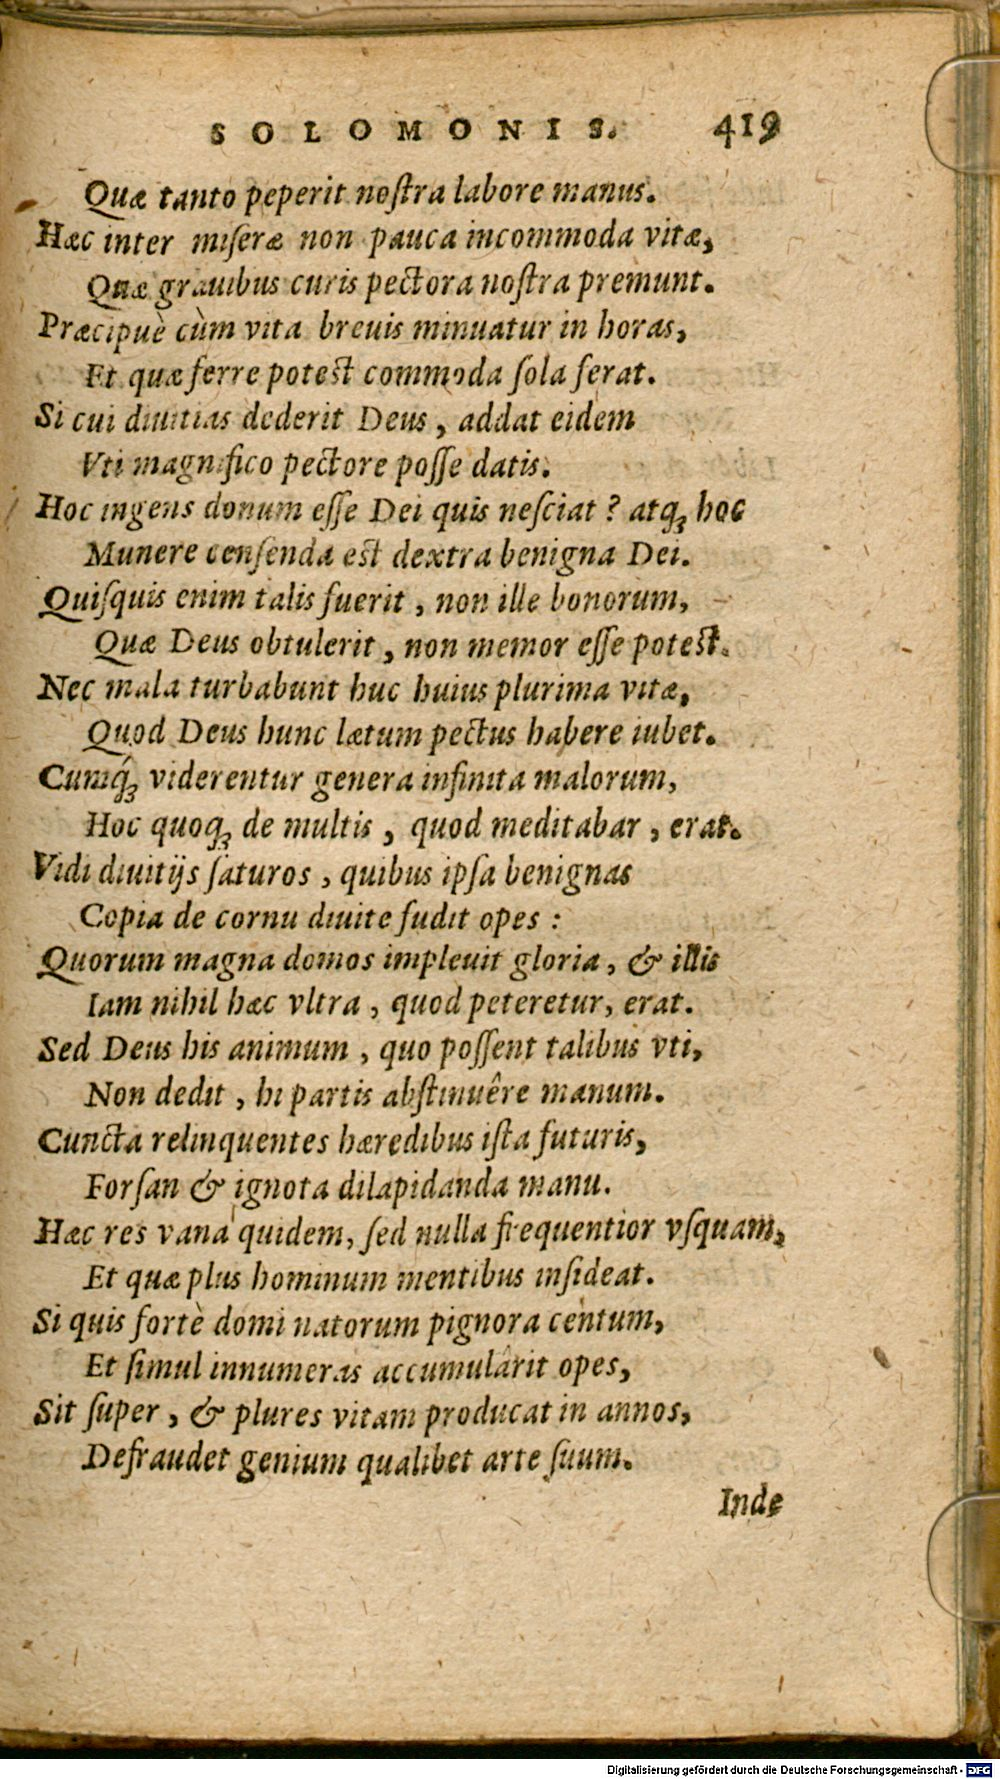 SOLOMONIS. 419
Quæ tanto peperit noſtra labore manus.
Hæc inter miſeræ non pauca incommoda vitæ,
Quæ grauibus curis pectora noſtra premunt.
Præcipuè cùm vita breuis minuatur in horas,
Et quæ ferre poteſt commoda ſola ferat.
Si cui diuitias dederit Deus, addat eidem
Vti magnifico pectore poſſe datis.
Hoc ingens donum eſſe Dei quis neſciat? atq₃ hoc
Munere cenſenda eſt dextra benigna Dei.
Quiſquis enim talis fuerit, non ille bonorum,
Quæ Deus obtulerit, non memor eſſe poteſt.
Nec mala turbabunt huc huius plurima vitæ,
Quod Deus hunc lætum pectus habere iubet.
Cumq́₃ viderentur genera infinita malorum,
Hoc quoq₃ de multis, quod meditabar, erat.
Vidi diuitijs ſaturos, quibus ipſa benignas
Copia de cornu diuite fudit opes:
Quorum magna domos impleuit gloria, & illis
Iam nihil hæc vltra, quod peteretur, erat.
Sed Deus his animum, quo poſſent talibus vti,
Non dedit, hi partis abſtinuêre manum.
Cuncta relinquentes hæredibus iſta futuris,
Forſan & ignota dilapidanda manu.
Hæc res vana quidem, ſed nulla frequentior vſquam,
Et quæ plus hominum mentibus inſideat.
Si quis fortè domi natorum pignora centum,
Et ſimul innumeras accumulârit opes,
Sit ſuper, & plures vitam producat in annos,
Defraudet genium qualibet arte ſuum.
Inde
Digitalisierung gefördert durch die Deutsche Forschungsgemeinschaft - DFG